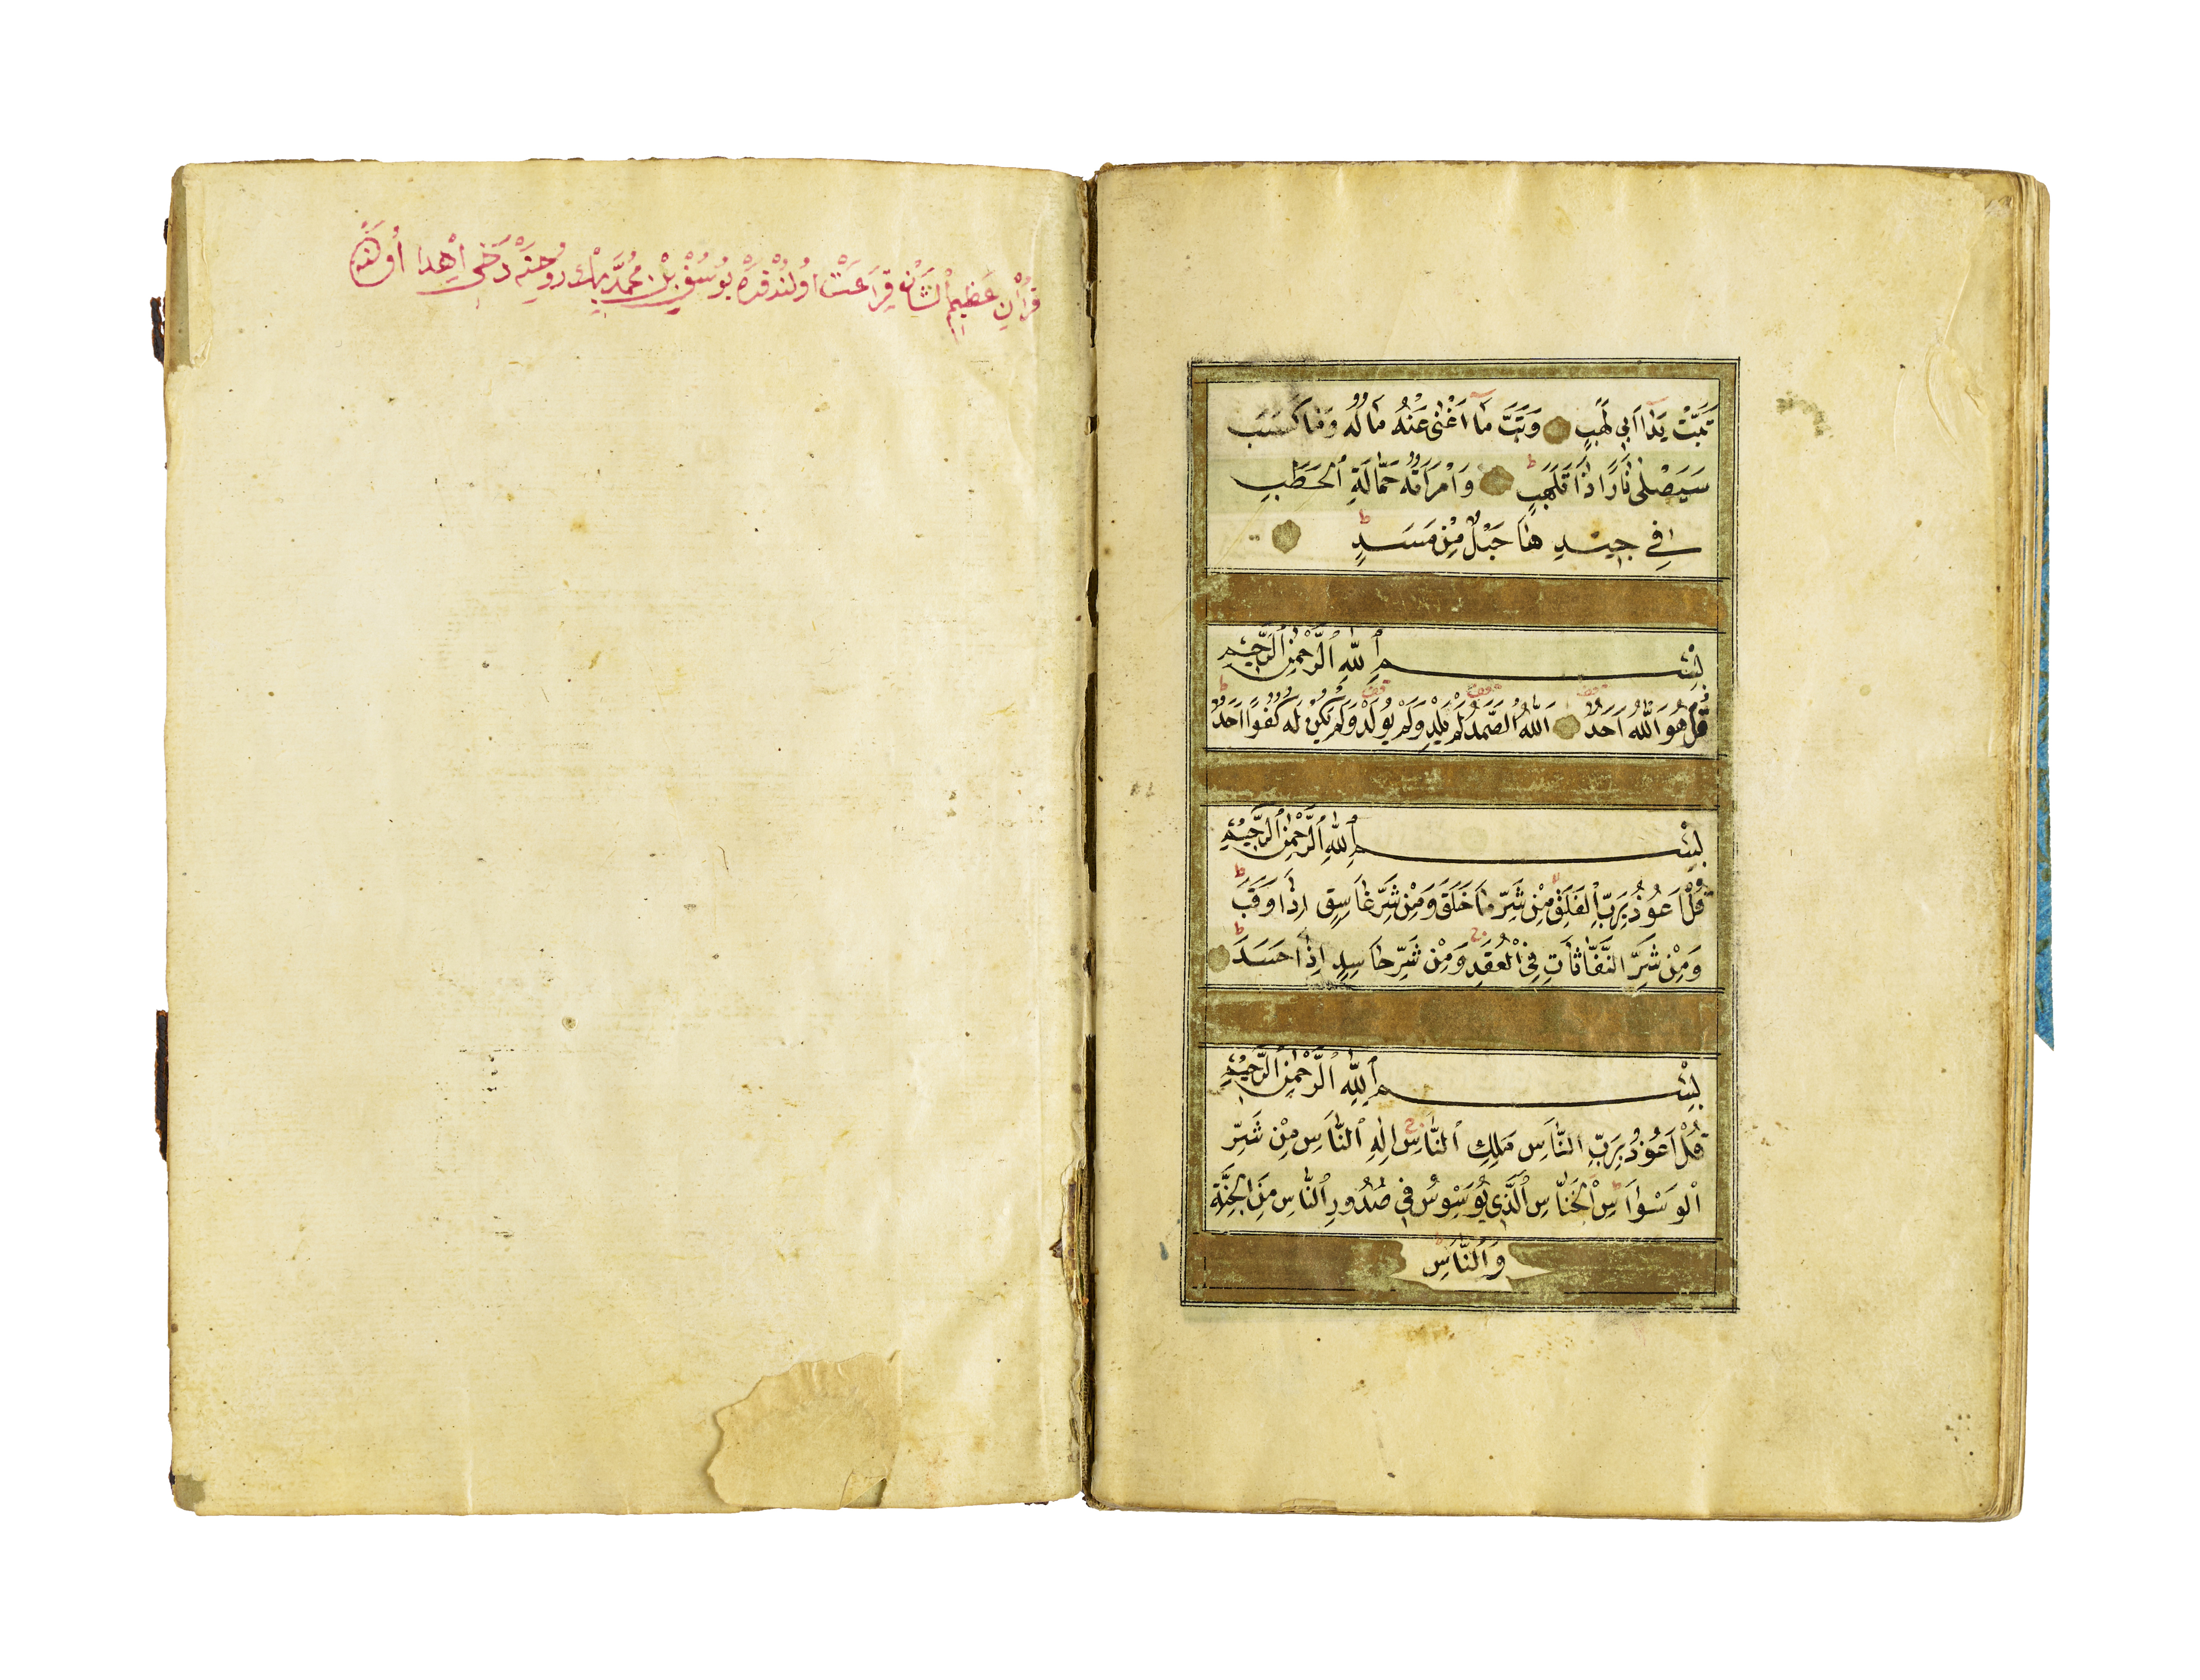 تَبَّتْ يَدَا اَبِي لَهَبٍ وَتَبَّ مَا اَغْنٰى عَنْهُ مَالُهُ وَمَا كَسَبَ
سَيَصْلٰى نَارًا ذَاتَ لَهَبٍ ط وَامْرَاَتُهُ حَمَّالَةِ الْحَطَبِ
فِي جِيدِهَا حَبْلٌ مِنْ مَسَدٍ ط
بِسْمِ اللّٰهِ الرَّحْمٰنِ الرَّحِيمِ
قُلْ هُوَ اللّٰهُ اَحَدٌ اَللّٰهُ الصَّمَدُ لَمْ يَلِدْ وَلَمْ يُولَدْ وَلَمْ يَكُنْ لَهُ كُفُوًا اَحَدٌ ط
بِسْمِ اللّٰهِ الرَّحْمٰنِ الرَّحِيمِ
قُلْ اَعُوذُ بِرَبِّ الْفَلَقِ مِنْ شَرِّ مَا خَلَقَ وَمِنْ شَرِّ غَاسِقٍ اِذَا وَقَبَ ط
وَمِنْ شَرِّ النَّفَّاثَاتِ فِي الْعُقَدِ وَمِنْ شَرِّ حَاسِدٍ اِذَا حَسَدَ ط
بِسْمِ اللّٰهِ الرَّحْمٰنِ الرَّحِيمِ
قُلْ اَعُوذُ بِرَبِّ النَّاسِ مَلِكِ النَّاسِ اِلٰهِ النَّاسِ مِنْ شَرِّ
الْوَسْوَاسِ الْخَنَّاسِ الَّذِي يُوَسْوِسُ فِي صُدُورِ النَّاسِ مِنَ الْجِنَّةِ
وَالنَّاسِ
قُرْاٰنِ عَظِيمُ الشَّانْ قِرَاءَتْ اُولُنْدُقْدَه يُوسُفْ بِنْ مُحَمَّدْ بِكْ رُوحِنَه دَخِي اِهْدَا اُولُنَه